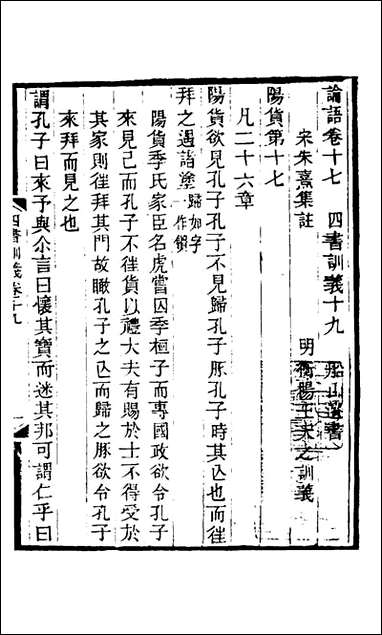 論語卷十七　四書訓義十九　船山遺書
宋朱熹集註　明衡陽王夫之訓義
陽貨第十七
凡二十六章
陽貨欲見孔子孔子不見歸孔子豚孔子時其亾也而徃
拜之遇諸塗歸如字一作饋
陽貨季氏家臣名虎嘗囚季桓子而專國政欲令孔子
來見己而孔子不徃貨以禮大夫有賜於士不得受於
其家則徃拜其門故瞰孔子之亾而歸之豚欲令孔子
來拜而見之也
謂孔子曰來予與尒言曰懷其寶而迷其邦可謂仁乎曰
四書訓義卷十九
一